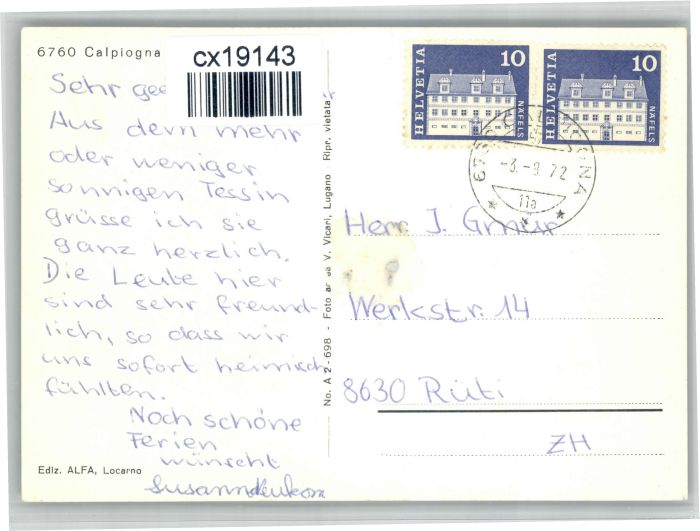 6760 Calpiogna
cx19143
Sehr
Aus dem mehr
oder weniger
sonnigen Tessin
grüsse ich sie
ganz herzlich.
Die Leute hier
sind sehr freund-
lich, so dass wir
uns sofort heimisch
fühlten.
Noch schöne
Ferien
wünscht
Ediz. ALFA, Locarno
No. A 2-698 - Foto V. Vicari, Lugano Ripr. vietata
HELVETIA 10 NÄFELS
HELVETIA 10 NÄFELS
-3.-9.72
11a
Herr J. Gmür
Werkstr. 14
8630 Rüti
ZH